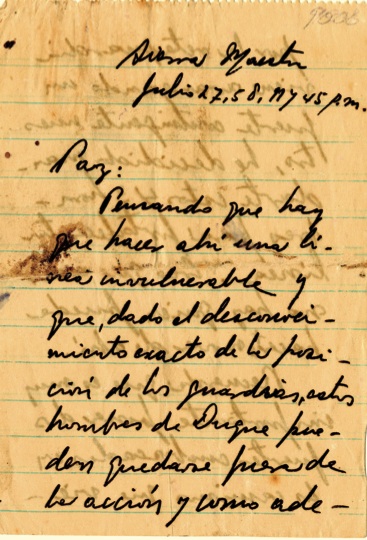 Sierra Maestra
Julio 27, 58, 11 y 45 p.m.
Paz:
Pensando que hay
que hacer ahi una lí-
nea invulnerable y
que, dado el desconoci-
miento exacto de la posi-
ción de los guardias, estos
hombres de Duque pue-
den quedarse fuera de
la acción y como ade-